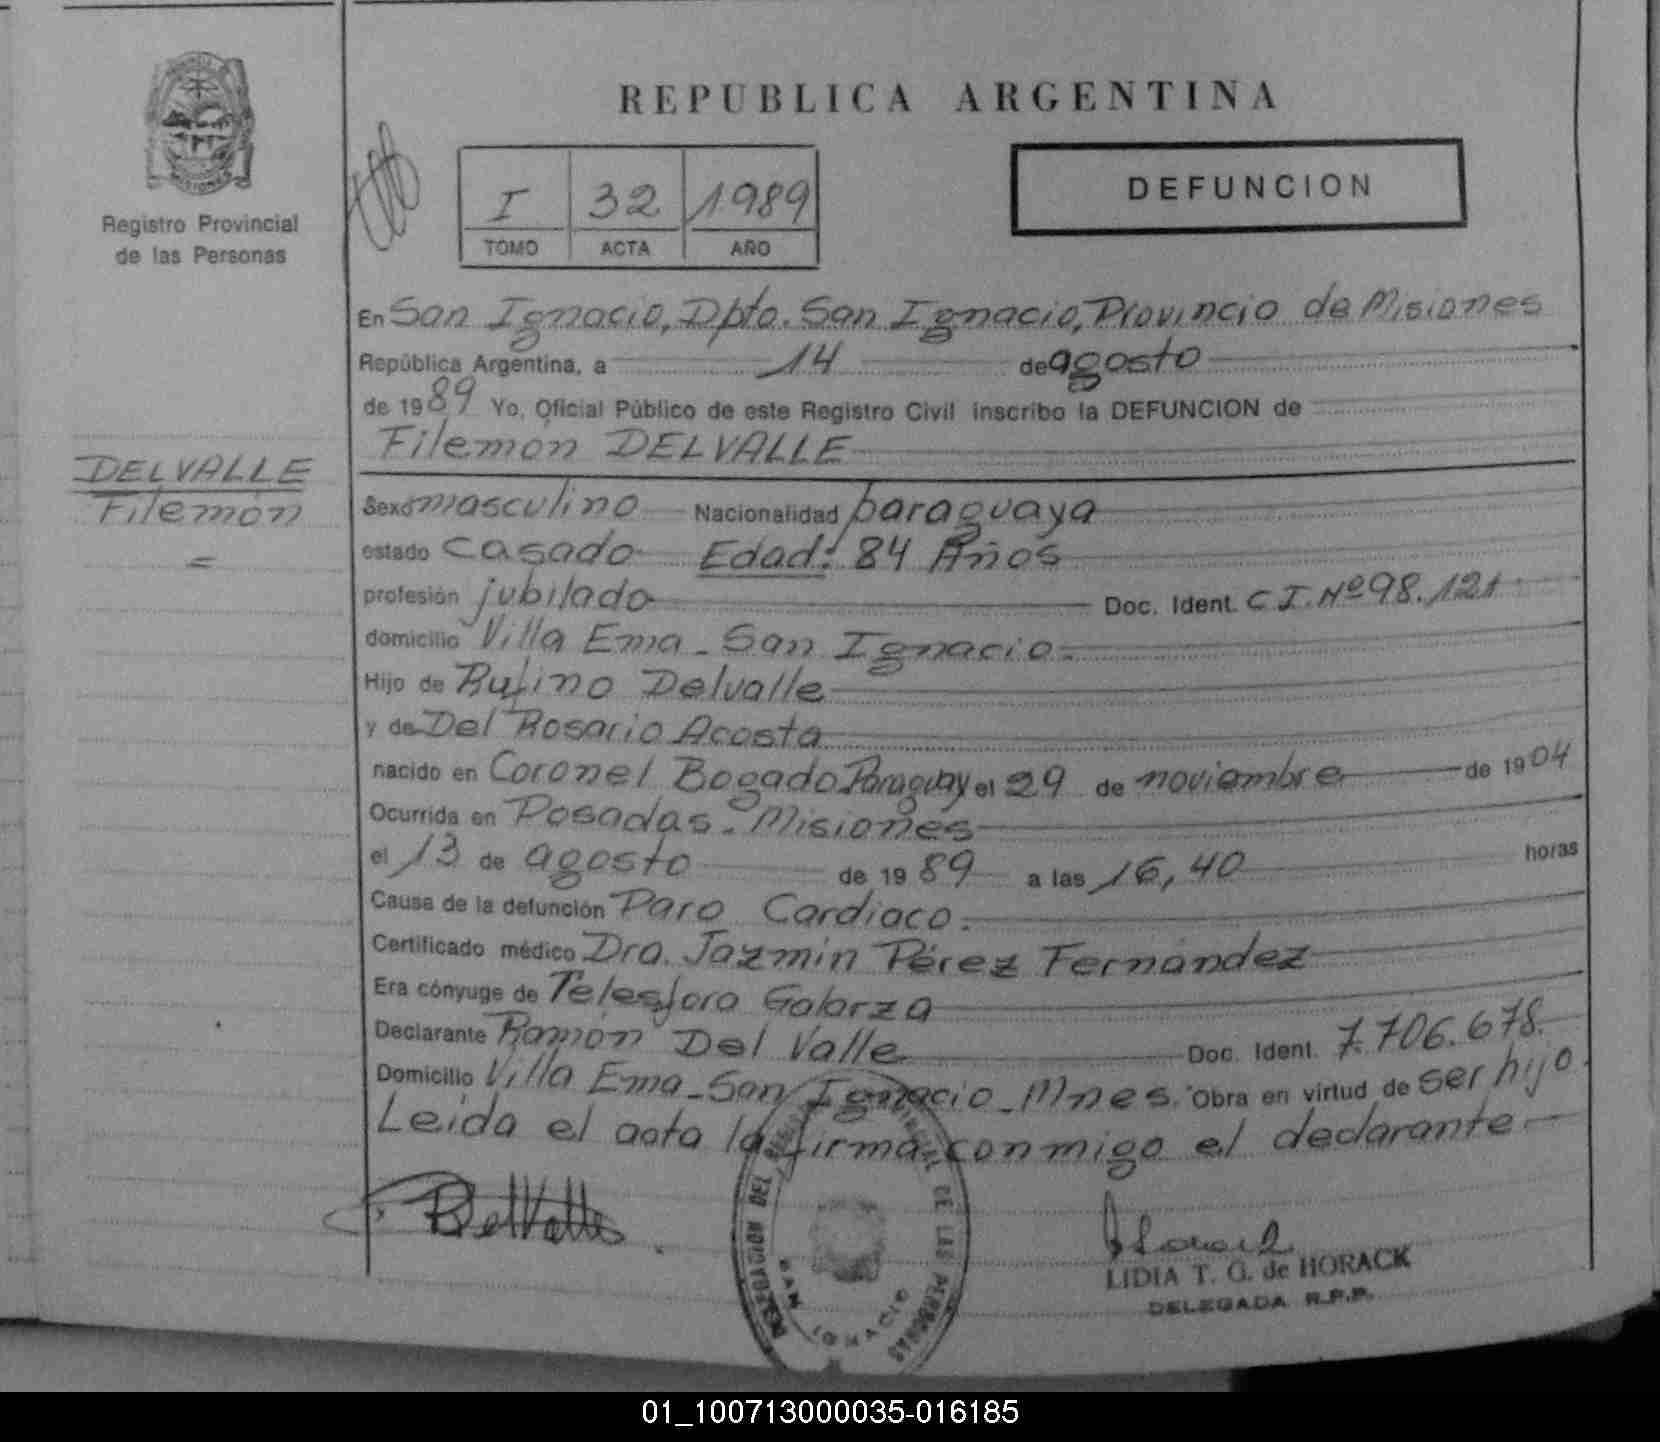 REPUBLICA ARGENTINA
Registro Provincial
de las Personas
I 32 1989
TOMO ACTA AÑO
DEFUNCION
DELVALLE
Filemón
=
En San Ignacio, Dpto. San Ignacio, Provincia de Misiones
República Argentina, a 14 de agosto
de 1989 Yo, Oficial Público de este Registro Civil inscribo la DEFUNCION de
Filemón DELVALLE
Sexo masculino Nacionalidad paraguaya
estado casado Edad: 84 Años
profesión jubilado Doc. Ident. C I. Nº 98.121
domicilio Villa Ema - San Ignacio.
Hijo de Rufino Delvalle
y de Del Rosario Acosta
nacido en Coronel Bogado Paraguay el 29 de noviembre de 1904
Ocurrida en Posadas - Misiones
el 13 de agosto de 1989 a las 16,40 horas
Causa de la defunción Paro Cardiaco.
Certificado médico Dra. Jazmín Pérez Fernández
Era cónyuge de Telesfora Galarza
Declarante Ramón Del Valle Doc. Ident. 7.706.678.
Domicilio Villa Ema - San Ignacio - Mnes. Obra en virtud de ser hijo.
Leida el acta la firma conmigo el declarante
DelValle
LIDIA T. G. de HORACK
DELEGADA R.P.P.
DELEGACION DEL REGISTRO PROVINCIAL DE LAS PERSONAS
SAN IGNACIO
01_100713000035-016185